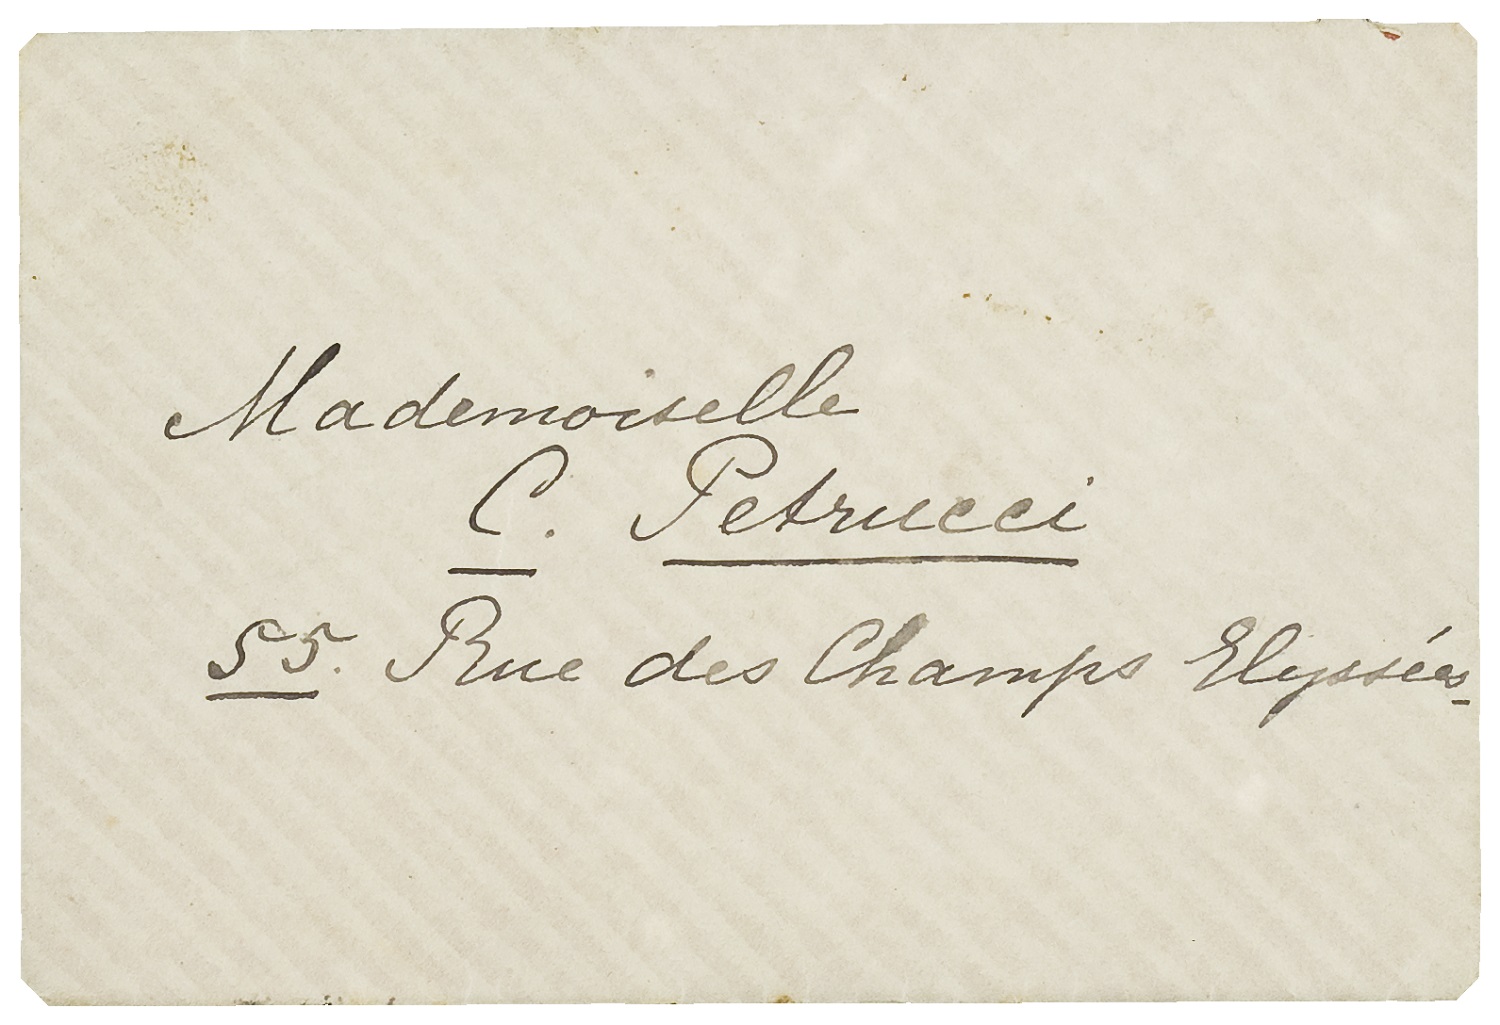 Mademoiselle
C. Petrucci
55. Rue des Champs Elyssées